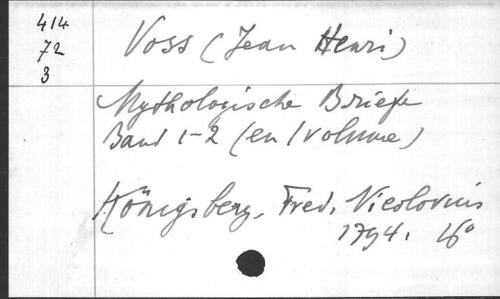 414
72
3
Voss (Jean Henri)
Mythologische Briefe
Band 1-2 (en 1 volume)
Königsberg, Fred. Nicolovius
1794. 16°